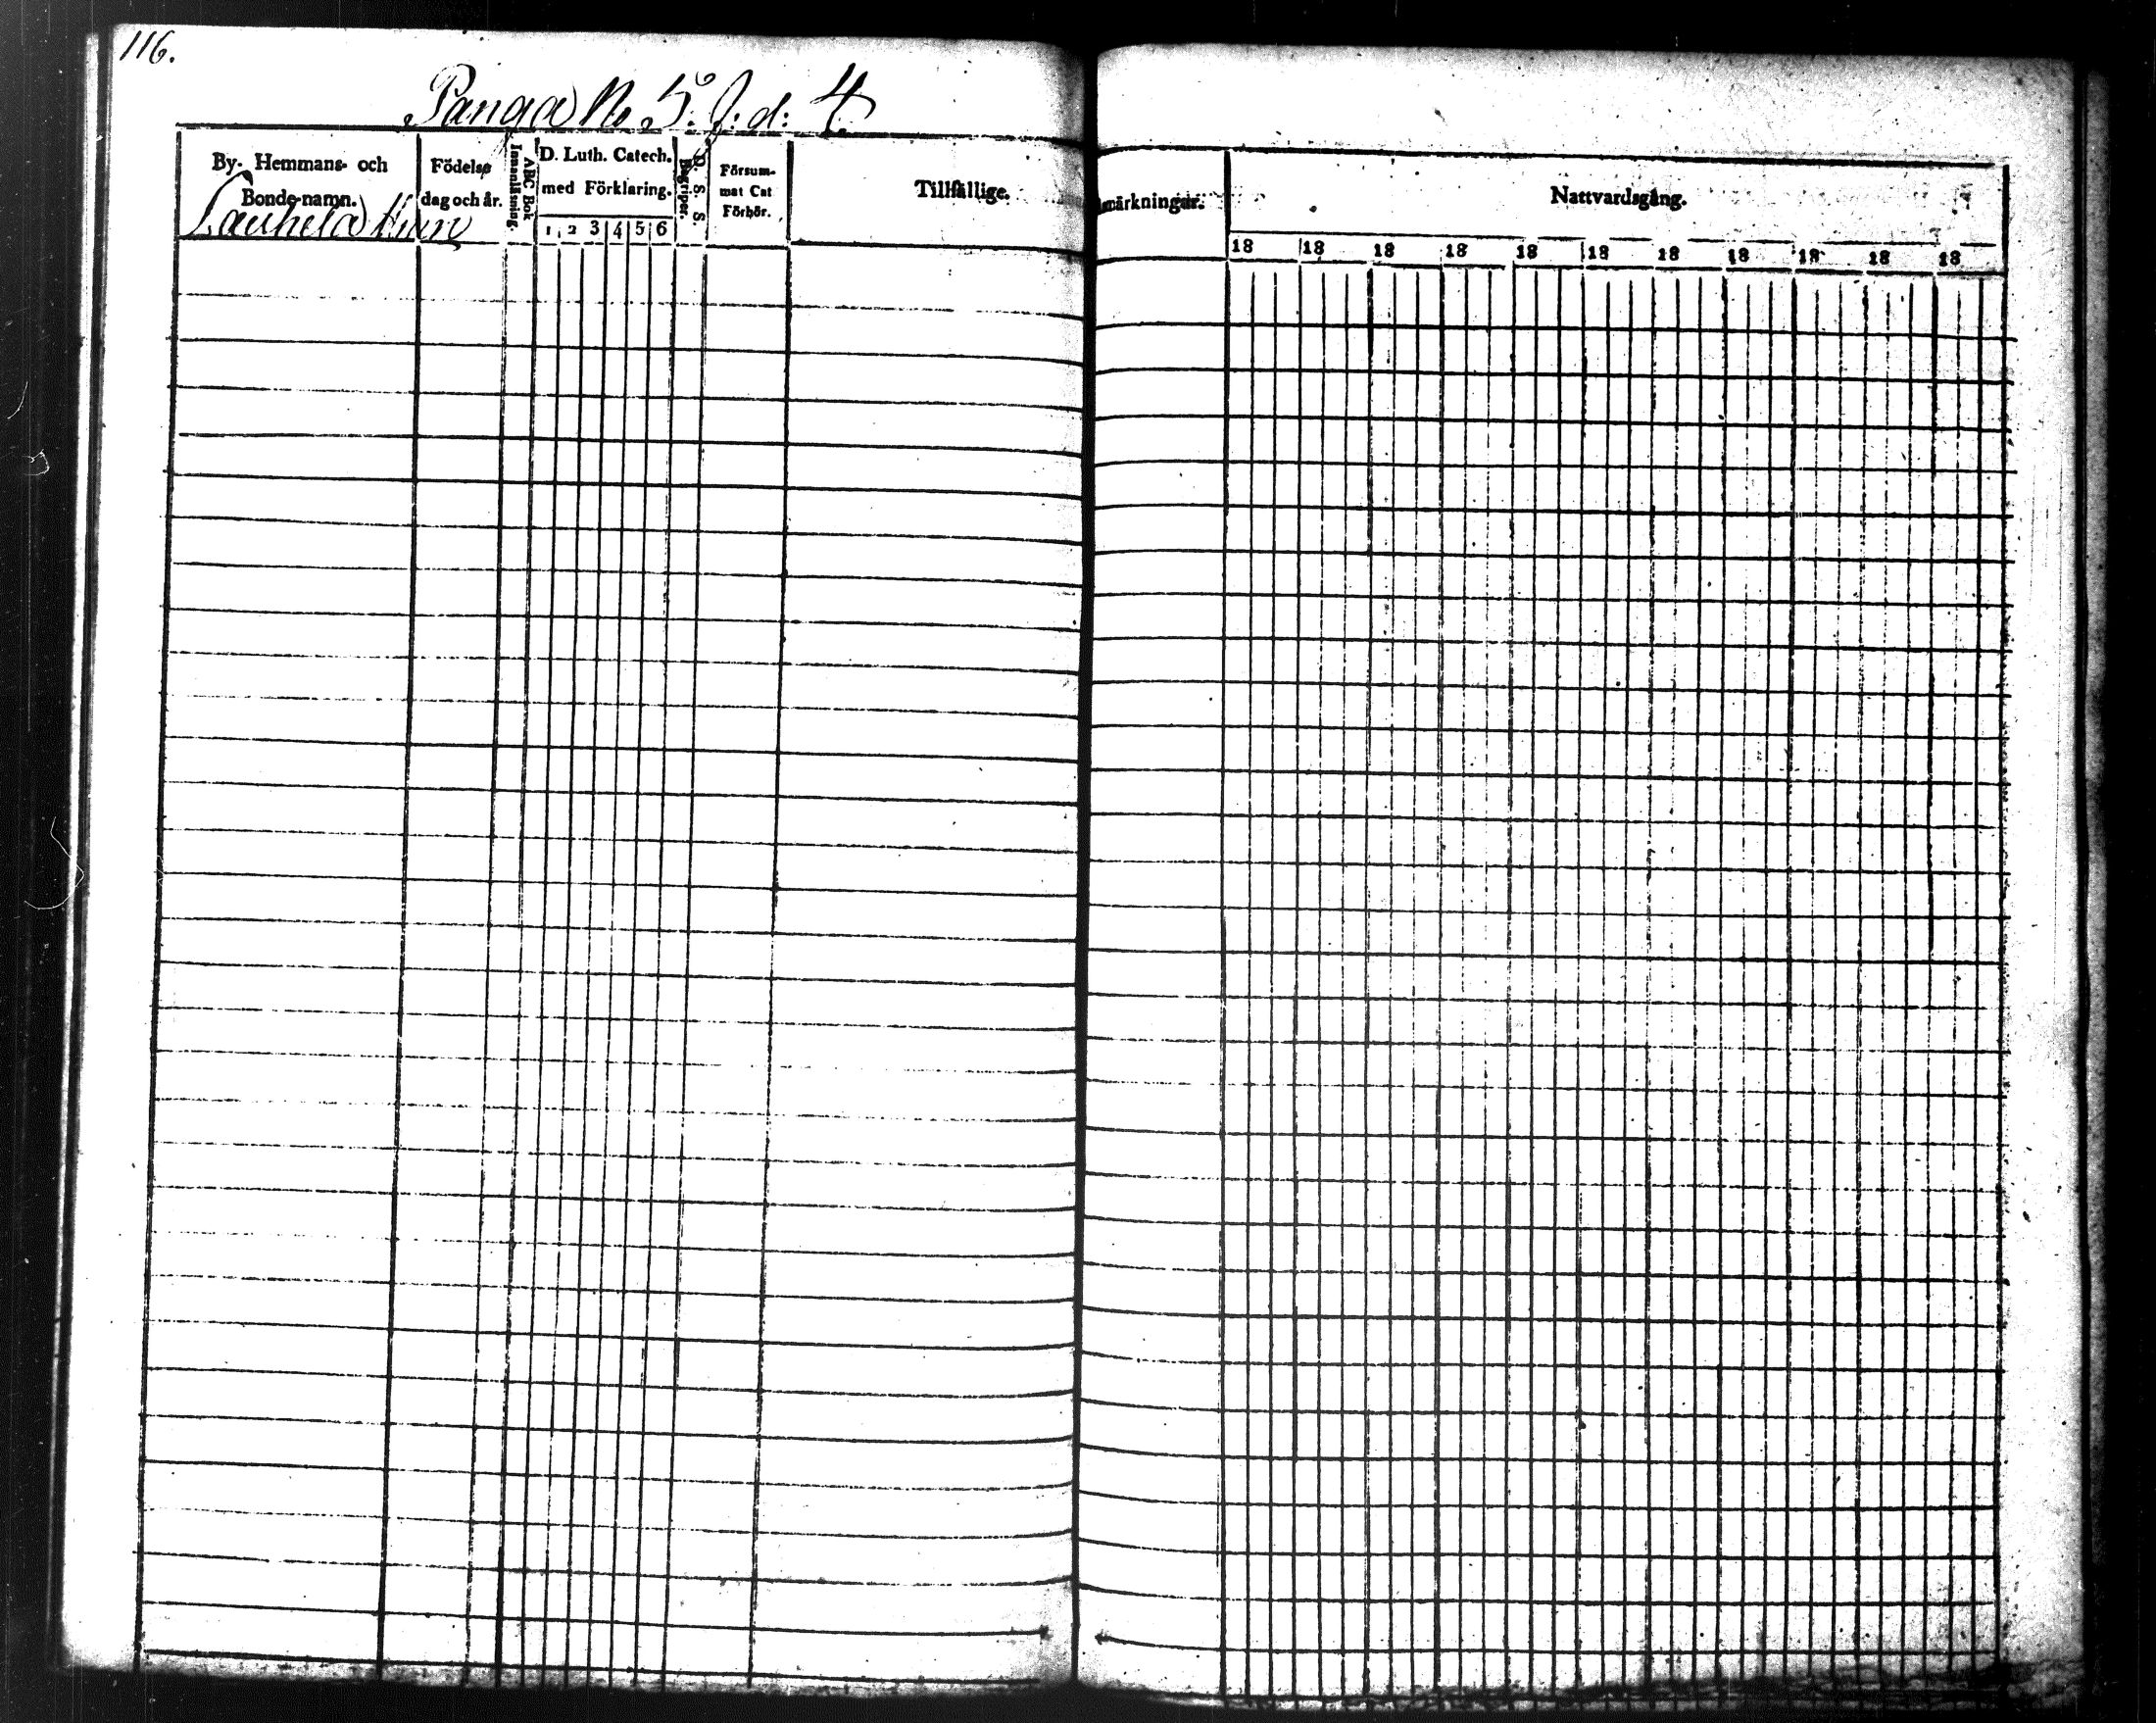 116.
Panga No 5. J: d: 4
By- Hemmans- och Bonde-namn.
Födelse dag och år.
Innanläsning.
ABC Bok
D. Luth. Catech. med Förklaring.
1 2 3 4 5 6
Begriper.
D. S. S.
Försum-mat Cat Förhör.
Tillfällige.
märkningar.
Nattvardsgång.
18 18 18 18 18 18 18 18 18 18 18